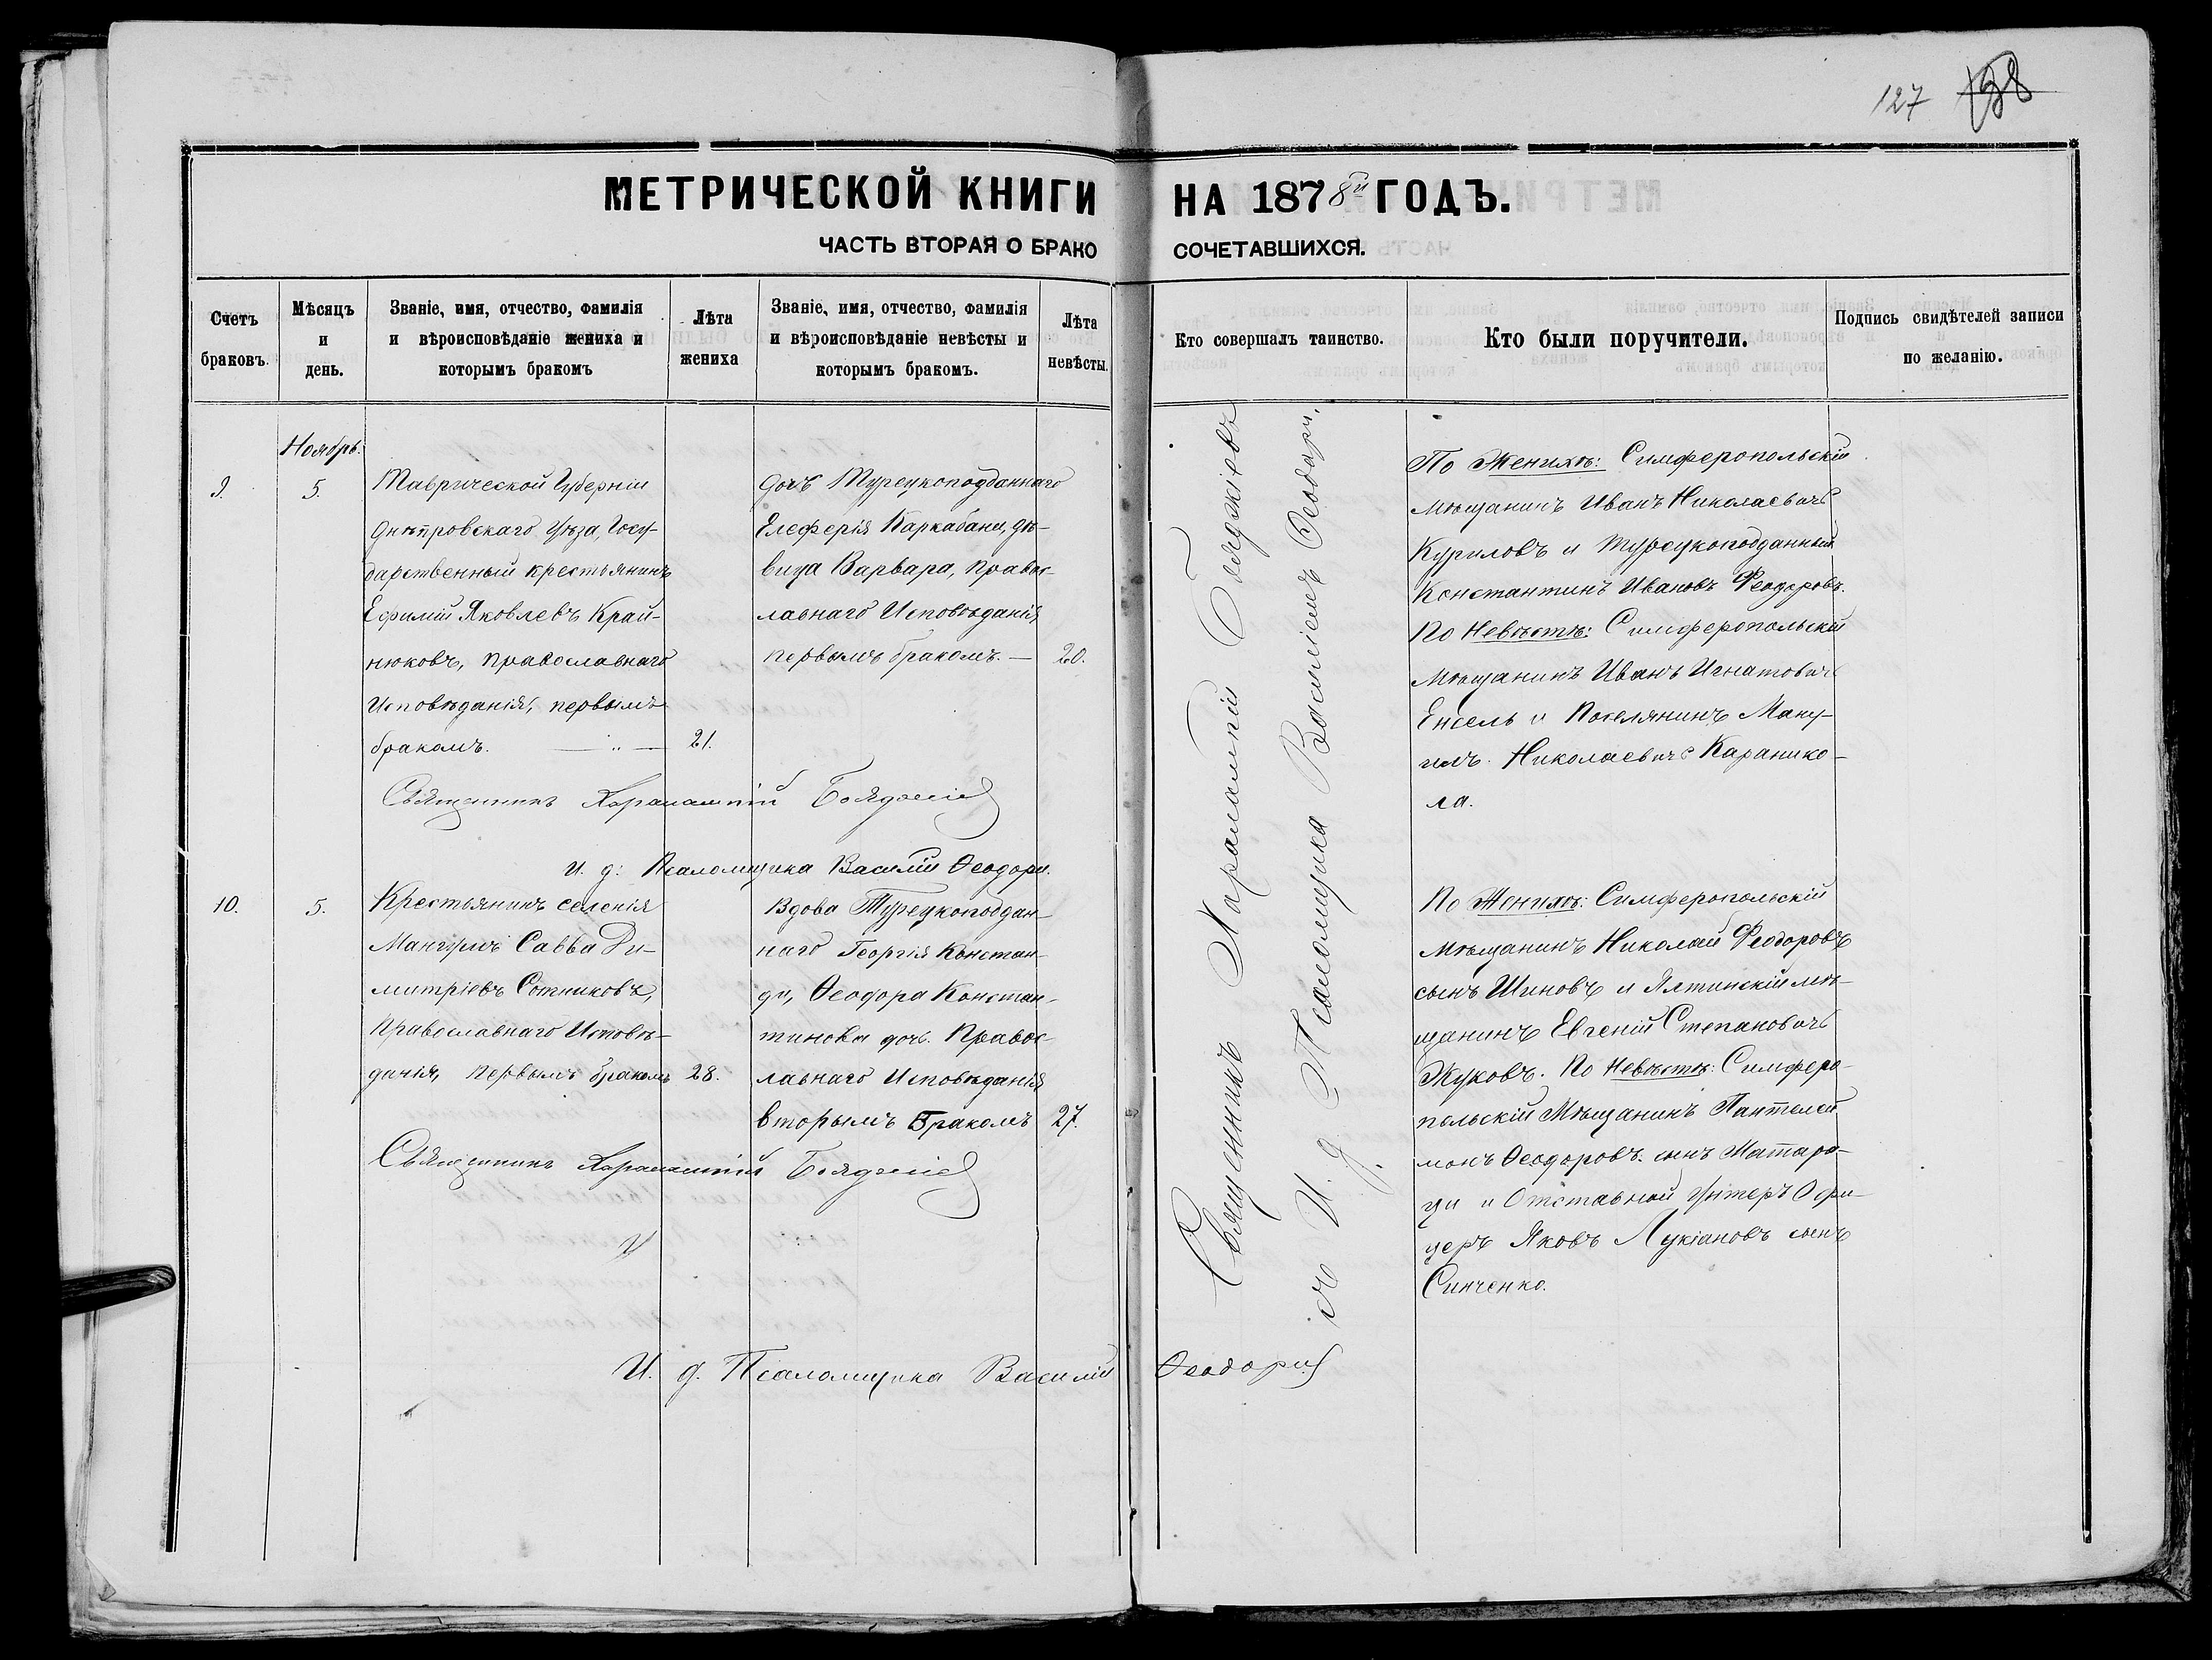 127 138
МЕТРИЧЕСКОЙ КНИГИ НА 1878й ГОДЪ.
ЧАСТЬ ВТОРАЯ О БРАКОСОЧЕТАВШИХСЯ.
Счетъ браковъ.
Мѣсяцъ и день.
Званіе, имя, отчество, фамилія и вѣроисповѣданіе жениха и которымъ бракомъ
Лѣта жениха
Званіе, имя, отчество, фамилія и вѣроисповѣданіе невѣсты и которымъ бракомъ.
Лѣта невѣсты.
Кто совершалъ таинство.
Кто были поручители.
Подпись свидѣтелей записи по желанію.
Ноябрь.
9.
5.
Таврической Губерніи
Днѣпровскаго Уѣзда, Госу-
дарственный крестьянинъ
Ефимій Яковлевъ Край-
нюковъ, православнаго
Исповѣданія, первымъ
бракомъ. — " —
21.
дочь Турецкоподданнаго
Елеферія Каркабани, дѣ-
вица Варвара, правос-
лавнаго Исповѣданія
первымъ бракомъ. —
20.
Священникъ Харалампій Бояджіевъ
и И. д. Псаломщика Василіемъ Ѳеодори.
По Женихѣ: Симферопольскій
мѣщанинъ Иванъ Николаевичъ
Куриловъ и турецкоподданный
Константинъ Ивановъ Феодоровъ.
По Невѣстѣ: Симферопольскій
Мѣщанинъ Иванъ Игнатовичъ
Енсель и Поселянинъ Ману-
илъ Николаевичъ Каранико-
ла.
Священникъ Харалампій Бояджіев
И. д: Псаломщика Василій Ѳеодори.
10.
5.
Крестьянинъ селенія
Мангушъ Савва Ди-
митріевъ Сотниковъ,
Православнаго Исповѣ-
данія, первымъ бракомъ
28.
Вдова Турецкоподдан-
наго Георгія Констан-
ди, Ѳеодора Констан-
тинова дочь. Правос-
лавнаго Исповѣданія
вторымъ Бракомъ
27.
По Женихѣ: Симферопольскій
Мѣщанинъ Николай Феодоровъ
сынъ Шиновъ и Ялтинскій мѣ-
щанинъ Евгеній Степановичъ
Жуковъ. По Невѣстѣ: Симферо-
польскій Мѣщанинъ Пантелей
монъ Ѳеодоровъ сынъ Матара-
ци и Отставной Унтеръ Офи-
церъ Яковъ Лукіановъ сынъ
Синченко.
Священникъ Харалампій Бояджіев
И. д. Псаломщика Василій Ѳеодори